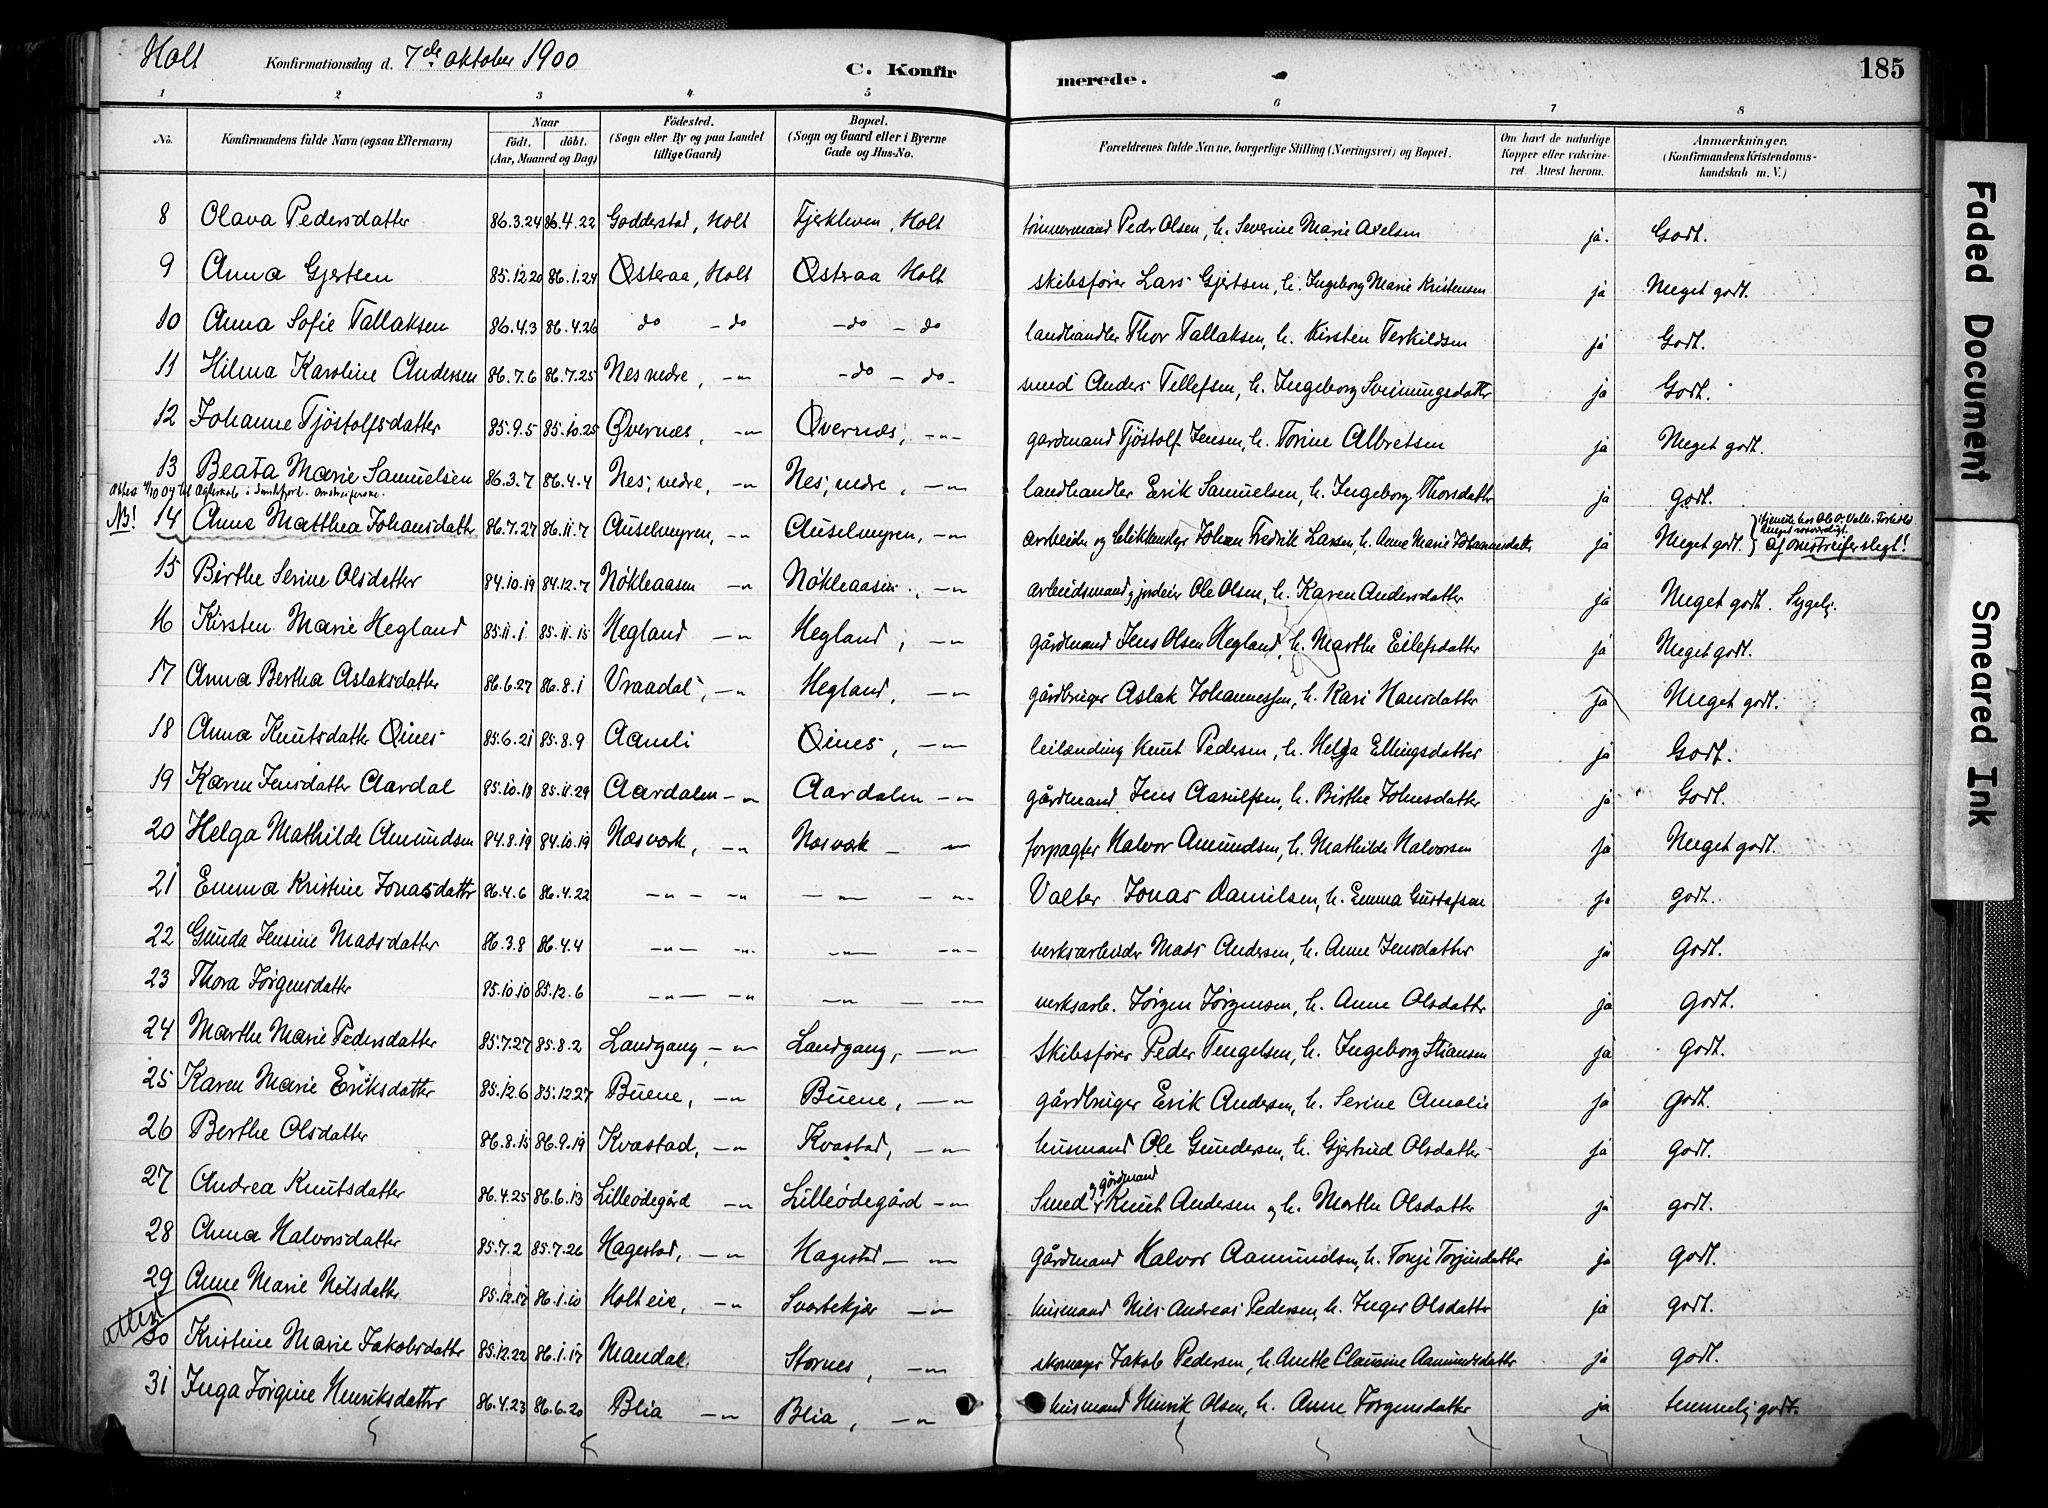 Holt Konfirmationsdag d. 7de oktober 1900 C. Konfirmerede. 185
1 2 3 4 5 6 7 8
No. Konfirmandens fulde Navn (ogsaa Efternavn) Naar födt. döbt. (Aar, Maaned og Dag) Födested. (Sogn eller By og paa Landet tillige Gaard) Bopæl. (Sogn og Gaard eller i Byerne Gade og Hus-No. Forældrenes fulde Navne, borgerlige Stilling (Næringsvei) og Bopæl. Om havt de naturlige Kopper eller vakcineret. Attest herom. Anmærkninger. (Konfirmandens Kristendomskundskab m. V.)
8 Olava Pedersdatter 86.3.24 86.4.22 Godderstad, Holt Fjerkleven, Holt tömmermand Peder Olsen, h. Severine Marie Axelsen ja. Godt.
9 Anna Gjertsen 85.12.20 86.1.24 Østeraa, Holt Østeraa Holt skibsfører Lars Gjertsen, h. Ingeborg Marie Kristensen ja Meget godt.
10 Anna Sofie Tallaksen 86.4.3 86.4.26 do - do - do - do landhandler Thor Tallaksen, h. Kirsten Terkildsen ja Godt.
11 Hilma Karoline Andersen 86.7.6 86.7.25 Nes nedre, -"- - do - do - smed Anders Tellefsen, h. Ingeborg Sveinungsdatter ja Godt.
12 Johanne Tjöstolfsdatter 85.9.5 85.10.25 Øvernæs, -"- Øvernæs, -"- gardmand Tjöstolf Jensen, h. Torine Albretsen ja Meget godt.
13 Beata Marie Samuelsen 86.3.7 86.4.4 Nes, nedre, -"- Nes, nedre, -"- landhandler Erik Samuelsen, h. Ingeborg Thorsdatter ja godt.
NB! 14 Anne Matthea Johansdatter 86.7.27 86.11.7 Auselmyren, -"- Auselmyren, -"- arbeider og blikkenslager Johan Fredrik Larsen, h. Anne Marie Johannesdatter ja Meget godt. af omstreiferslegt!
15 Birthe Serine Olsdatter 84.10.19 84.12.7 Nökleaasen -"- Nökleaasen, -"- arbeidsmand og jordeier Ole Olsen, h. Karen Andersdatter ja Meget godt. Sygelig.
16 Kirsten Marie Hegland 85.11.1 85.11.15 Hegland -"- Hegland, -"- gårdmand Jens Olsen Hegland, h. Marthe Eilefsdatter ja Meget godt.
17 Anna Bertha Aslaksdatter 86.6.27 86.8.1 Vraadal, -"- Hegland, -"- gårdbruger Aslak Johannessen, h. Kari Hansdatter ja Meget godt.
18 Anna Knutsdatter Øines 85.6.21 85.8.9 Aamli Øines, -"- leilænding Knut Pedersen, h. Helga Ellingsdatter ja Godt.
19 Karen Jensdatter Aardal 85.10.18 85.11.29 Aardalen -"- Aardalen -"- gårdmand Jens Aasulfsen, h. Birthe Johnsdatter ja Godt.
20 Helga Mathilde Amundsen 84.8.19 84.10.19 Næsværk, -"- Næsværk - -"- forpagter Halvor Amundsen, h. Mathilde Halvorsen ja Meget godt.
21 Emma Kristine Jonasdatter 86.4.6 86.4.22 -"- -"- -"- -"- Valter Jonas Danielsen, h. Emma Gustafsen ja godt.
22 Gunda Jensine Madsdatter 86.3.8 86.4.4 -"- -"- -"- -"- verksarbeider Mads Andersen, h. Anne Jensdatter ja Godt.
23 Thora Jørgensdatter 85.10.10 85.12.6 -"- -"- -"- -"- verksarb. Jørgen Jørgensen, h. Anne Olsdatter ja Godt.
24 Marthe Marie Pedersdatter 85.7.27 85.8.2 Landgang, -"- Landgang, -"- Skibsfører Peder Tengelsen, h. Ingeborg Stiansen ja Godt.
25 Karen Marie Eriksdatter 85.12.6 85.12.27 Buene, -"- Buene, -"- gårdbruger Erik Andersen, h. Serine Amalie ja godt.
26 Berthe Olsdatter 86.8.15 86.9.19 Kvastad, -"- Kvastad, -"- husmand Ole Gundersen, h. Gjertrud Olsdatter ja godt.
27 Andrea Knutsdatter 86.4.25 86.6.13 Lilleödegård -"- Lilleödegård -"- Smed og gårdmand Knut Andersen og h. Marthe Olsdatter ja godt.
28 Anna Halvorsdatter 85.7.2 85.7.26 Hagestad, -"- Hagestad -"- gårdmand Halvor Aamundsen, h. Tonje Torjusdatter ja godt.
29 Anne Marie Nilsdatter 85.12.17 86.1.10 Holt eie, -"- Svartekjær -"- husmand Nils Andreas Pedersen, h. Inger Olsdatter ja godt.
attest
30 Kristine Marie Jakobsdatter 85.12.22 86.1.17 Mandal Stornes, -"- skomager Jakob Pedersen, h. Anette Clausine Aamundsdatter ja godt.
31 Inga Jørgine Henriksdatter 86.4.23 86.6.20 Blia -"- Blia, -"- husmand Henrik Olsen, h. Anne Jørgensdatter ja temmelig godt.
Faded Document
Smeared Ink